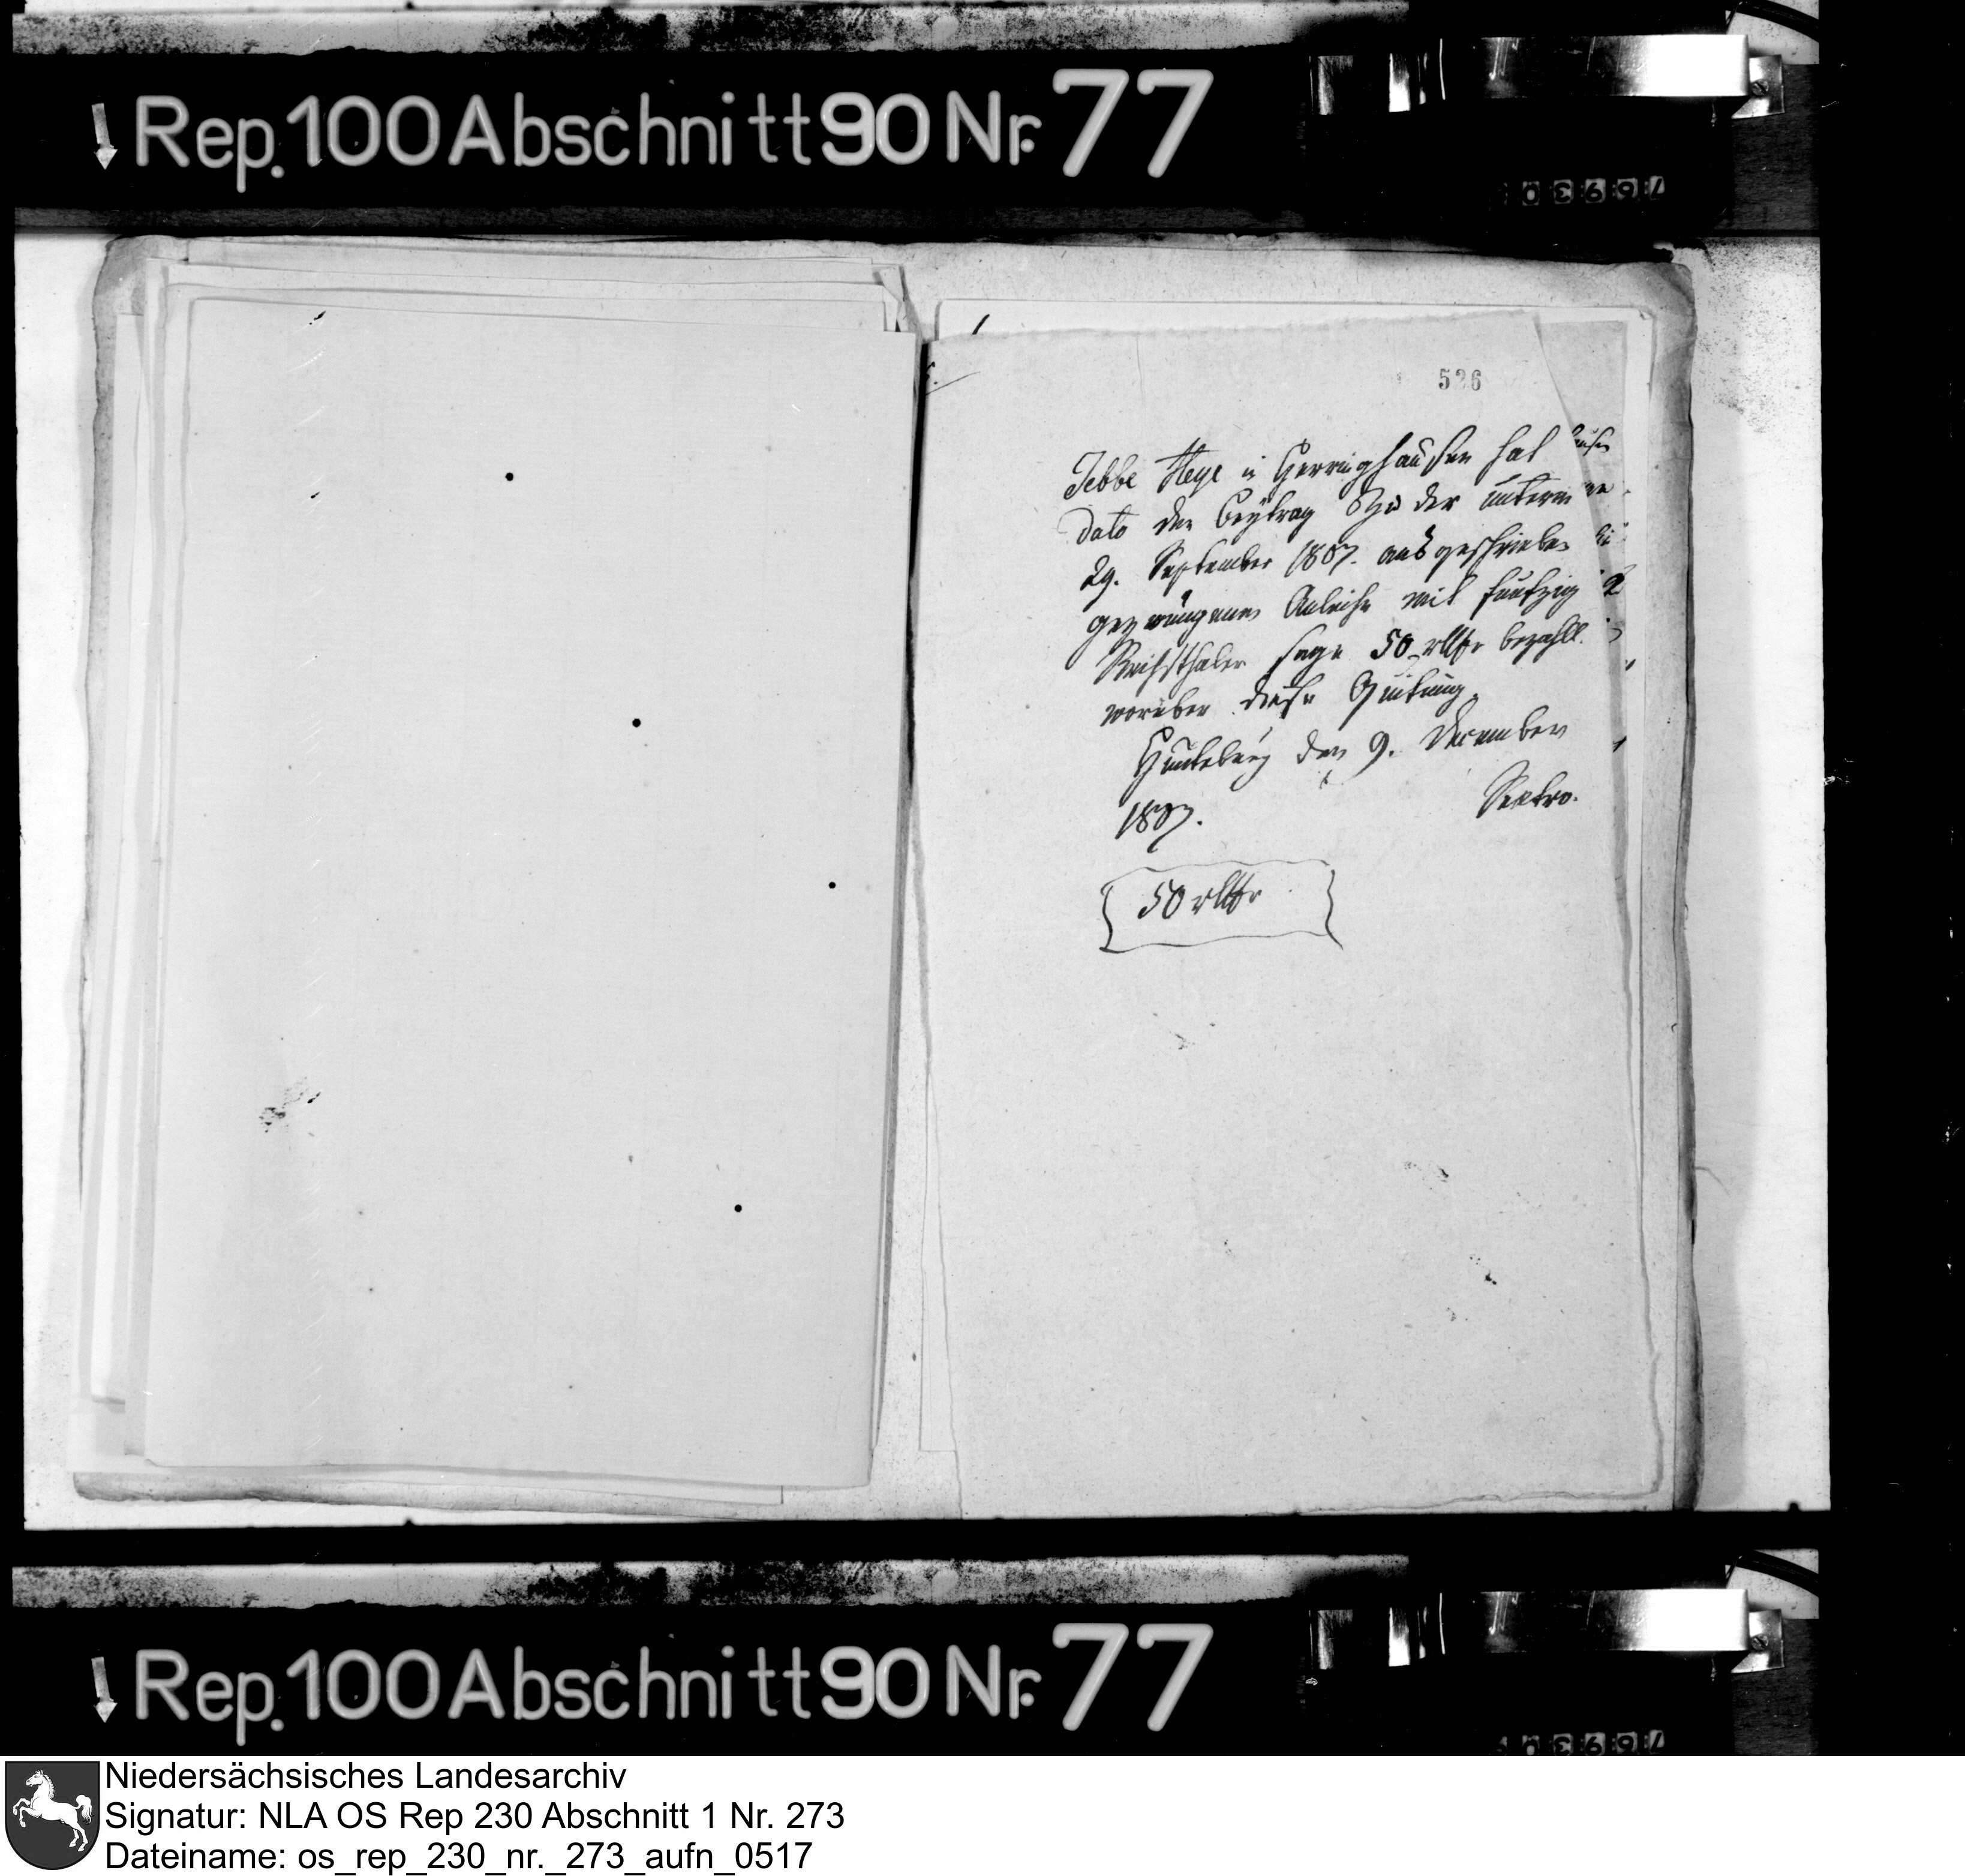 Rep. 100 Abschnitt 90 Nr. 77
526
Tebbe Heye in Herringhausen hat
dato den Beytrag zu der unterm
29. September 1807. ausgeschrieben
gezwungenen Anleihe mit funfzig
Reichsthaler sage 50 rthlr bezahlt.
worüber diese Quitung.
Hunteburg den 9. December
1807.
50 rthlr
Rep. 100 Abschnitt 90 Nr. 77
Niedersächsisches Landesarchiv
Signatur: NLA OS Rep 230 Abschnitt 1 Nr. 273
Dateiname: os_rep_230_nr._273_aufn_0517